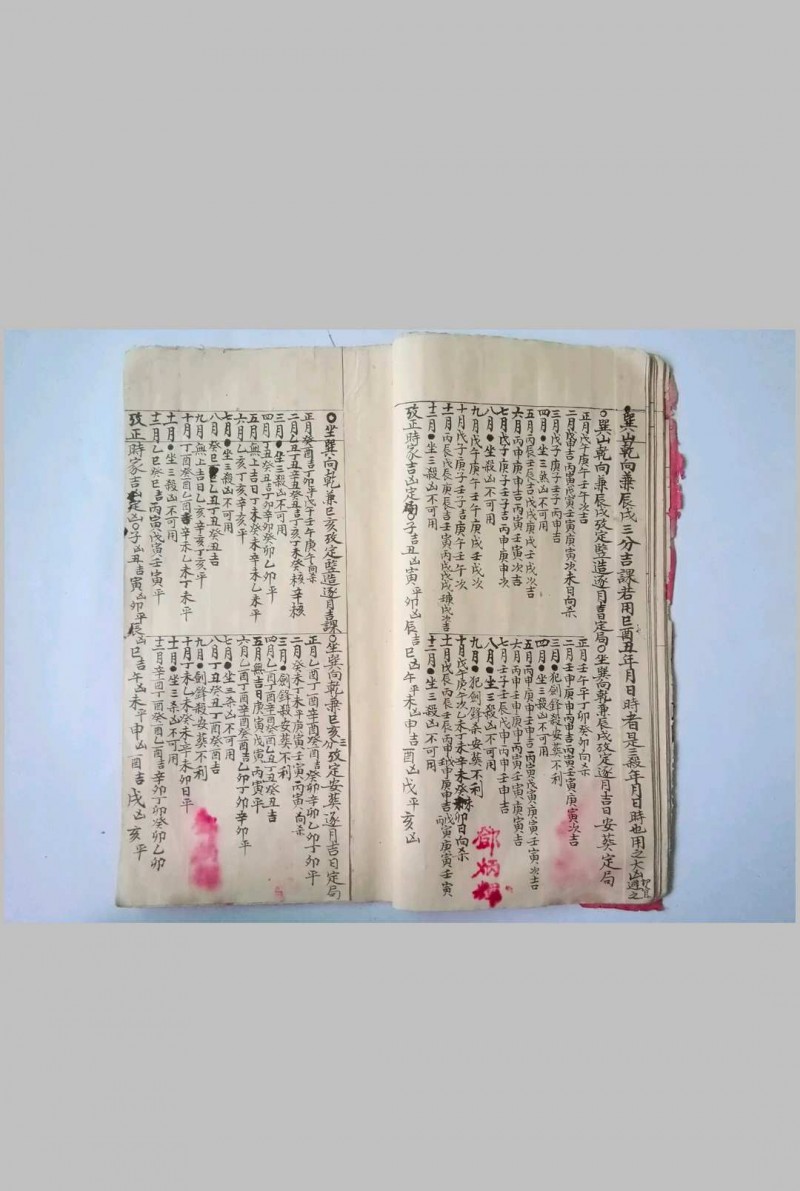 巽山乾向兼辰戌三分吉課若用巳酉丑年月日時者是三殺年月日時也用之大凶避之
○巽山乾向兼辰戌攷定豎造逐月吉日定局○坐巽向乾兼辰戌攷定逐月吉日安葬定局
正月戊午庚午壬午次吉
二月戊申吉丙寅戊寅壬寅庚寅次未日向杀
三月戊子庚子壬子丙申吉
四月●坐三煞凶不可用
五月丙辰壬辰吉戊戌庚戌壬戌次吉
六月丙申庚申吉丙寅壬寅次吉
七月戊子庚子壬子吉丙申庚申次
八月●坐殺凶不可用
九月戊午庚午壬午庚戌壬戌次
十月戊子庚子壬子吉庚午壬午次
十二月●坐三殺凶不可用
正月壬午丙午丁卯癸卯向杀
二月壬申庚申丙申吉丙寅壬寅庚寅次吉
三月●犯劍鋒殺安葬不利
四月●坐三殺凶不可用
五月丙申庚申壬申吉丙寅戊寅庚寅壬寅次吉
六月丙申壬申庚申丙寅壬寅庚寅吉
七月壬子壬辰戊申丙申壬申吉
八月●坐三殺凶不可用
九月●犯劍鋒杀安葬不利
十二月●坐三殺凶不可用
攷正時家吉凶定局○子吉丑凶寅平卯凶辰吉巳凶午平未凶申吉酉凶戌平亥凶
鄧炳輝
○坐巽向乾兼巳亥攷定豎造逐月吉課○坐巽向乾兼巳亥三分攷定安葬逐月吉日定局
三月●坐三殺凶不可用
四月丁丑癸丑吉丁卯辛卯癸卯乙卯平
五月無上吉日丁未癸未辛未乙未平
六月乙亥丁亥辛亥平
七月●坐三殺凶不可用
九月無上吉日乙亥辛亥丁亥平
十一月●坐三殺凶不可用
十二月乙巳癸巳吉丙寅戊寅壬寅平
正月乙酉丁酉辛酉癸酉吉癸卯辛卯乙卯丁卯平
二月癸未丁未平庚寅壬寅丙寅向杀
三月●劍鋒殺安葬不利
四月乙酉丁酉辛酉癸酉乙丑丁丑癸丑吉
五月無吉日庚寅戊寅丙寅平
六月乙酉丁酉辛酉癸酉吉乙卯丁卯辛卯平
七月●坐三杀凶不可用
八月丁丑癸丑丁酉癸酉吉
九月●劍鋒殺安葬不利
十月丁未乙未癸未辛未卯日平
十一月●坐三杀凶不可用
十二月辛酉丁酉癸酉乙酉吉辛卯丁卯癸卯乙卯
攷正時家吉凶定凶○子凶丑吉寅凶卯平辰凶巳吉午凶未平申凶酉吉戌凶亥平